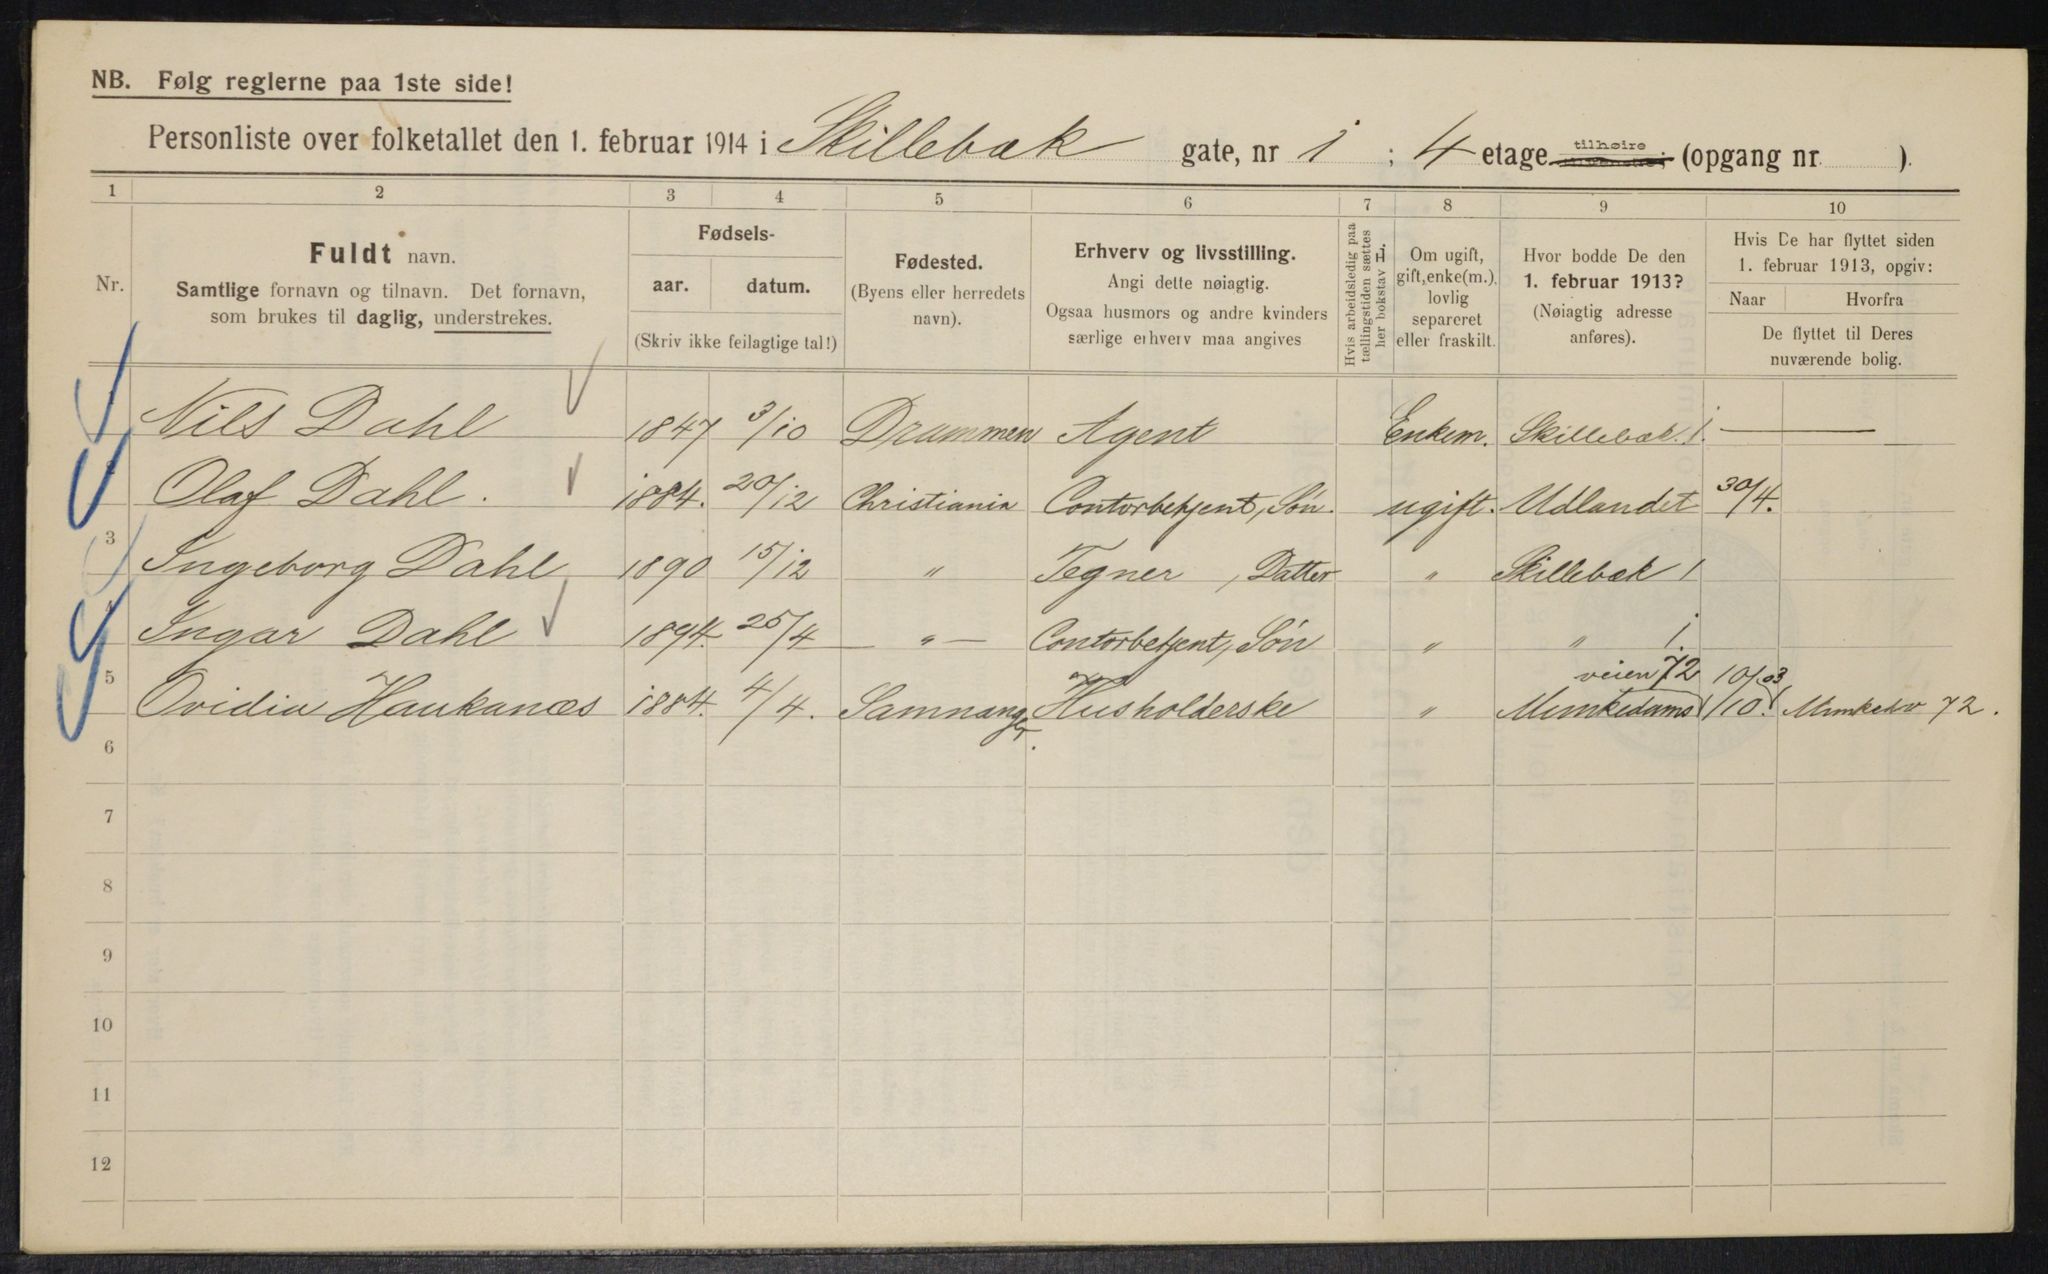 NB. Følg reglerne paa 1ste side!
Personliste over folketallet den 1. februar 1914 i Skillebæk gate, nr 1 ; 4 etage tilhøire (opgang nr ).
1 2 3 4 5 6 7 8 9 10
Nr.
Fuldt navn.
Samtlige fornavn og tilnavn. Det fornavn,
som brukes til daglig, understrekes.
Fødsels-
aar. datum.
(Skriv ikke feilagtige tal!)
Fødested.
(Byens eller herredets
navn).
Erhverv og livsstilling.
Angi dette nøiagtig.
Ogsaa husmors og andre kvinders
særlige erhverv maa angives
Hvis arbeidsledig paa
tællingstiden sættes
her bokstav L.
Om ugift,
gift, enke(m.),
lovlig
separeret
eller fraskilt.
Hvor bodde De den
1. februar 1913?
(Nøiagtig adresse
anføres).
Hvis De har flyttet siden
1. februar 1913, opgiv:
Naar Hvorfra
De flyttet til Deres
nuværende bolig.
Nils Dahl 1847 3/10 Drammen Agent Enkem. Skillebæk 1. —
Olaf Dahl. 1884. 20/12 Christiania Contorbetjent, Søn. ugift. Udlandet 30/4.
3 Ingeborg Dahl 1890 15/12 " Tegner, Datter " Skillebæk 1
4 Ingar Dahl 1894. 25/4 — " — Contorbetjent, Søn " " 1.
veien 72
5 Ovidia Haukanæs 1884. 4/4. Samnanger. Husholderske " Munkedams 1/10. Munkedv 72.
6
7
8
9
10
11
12